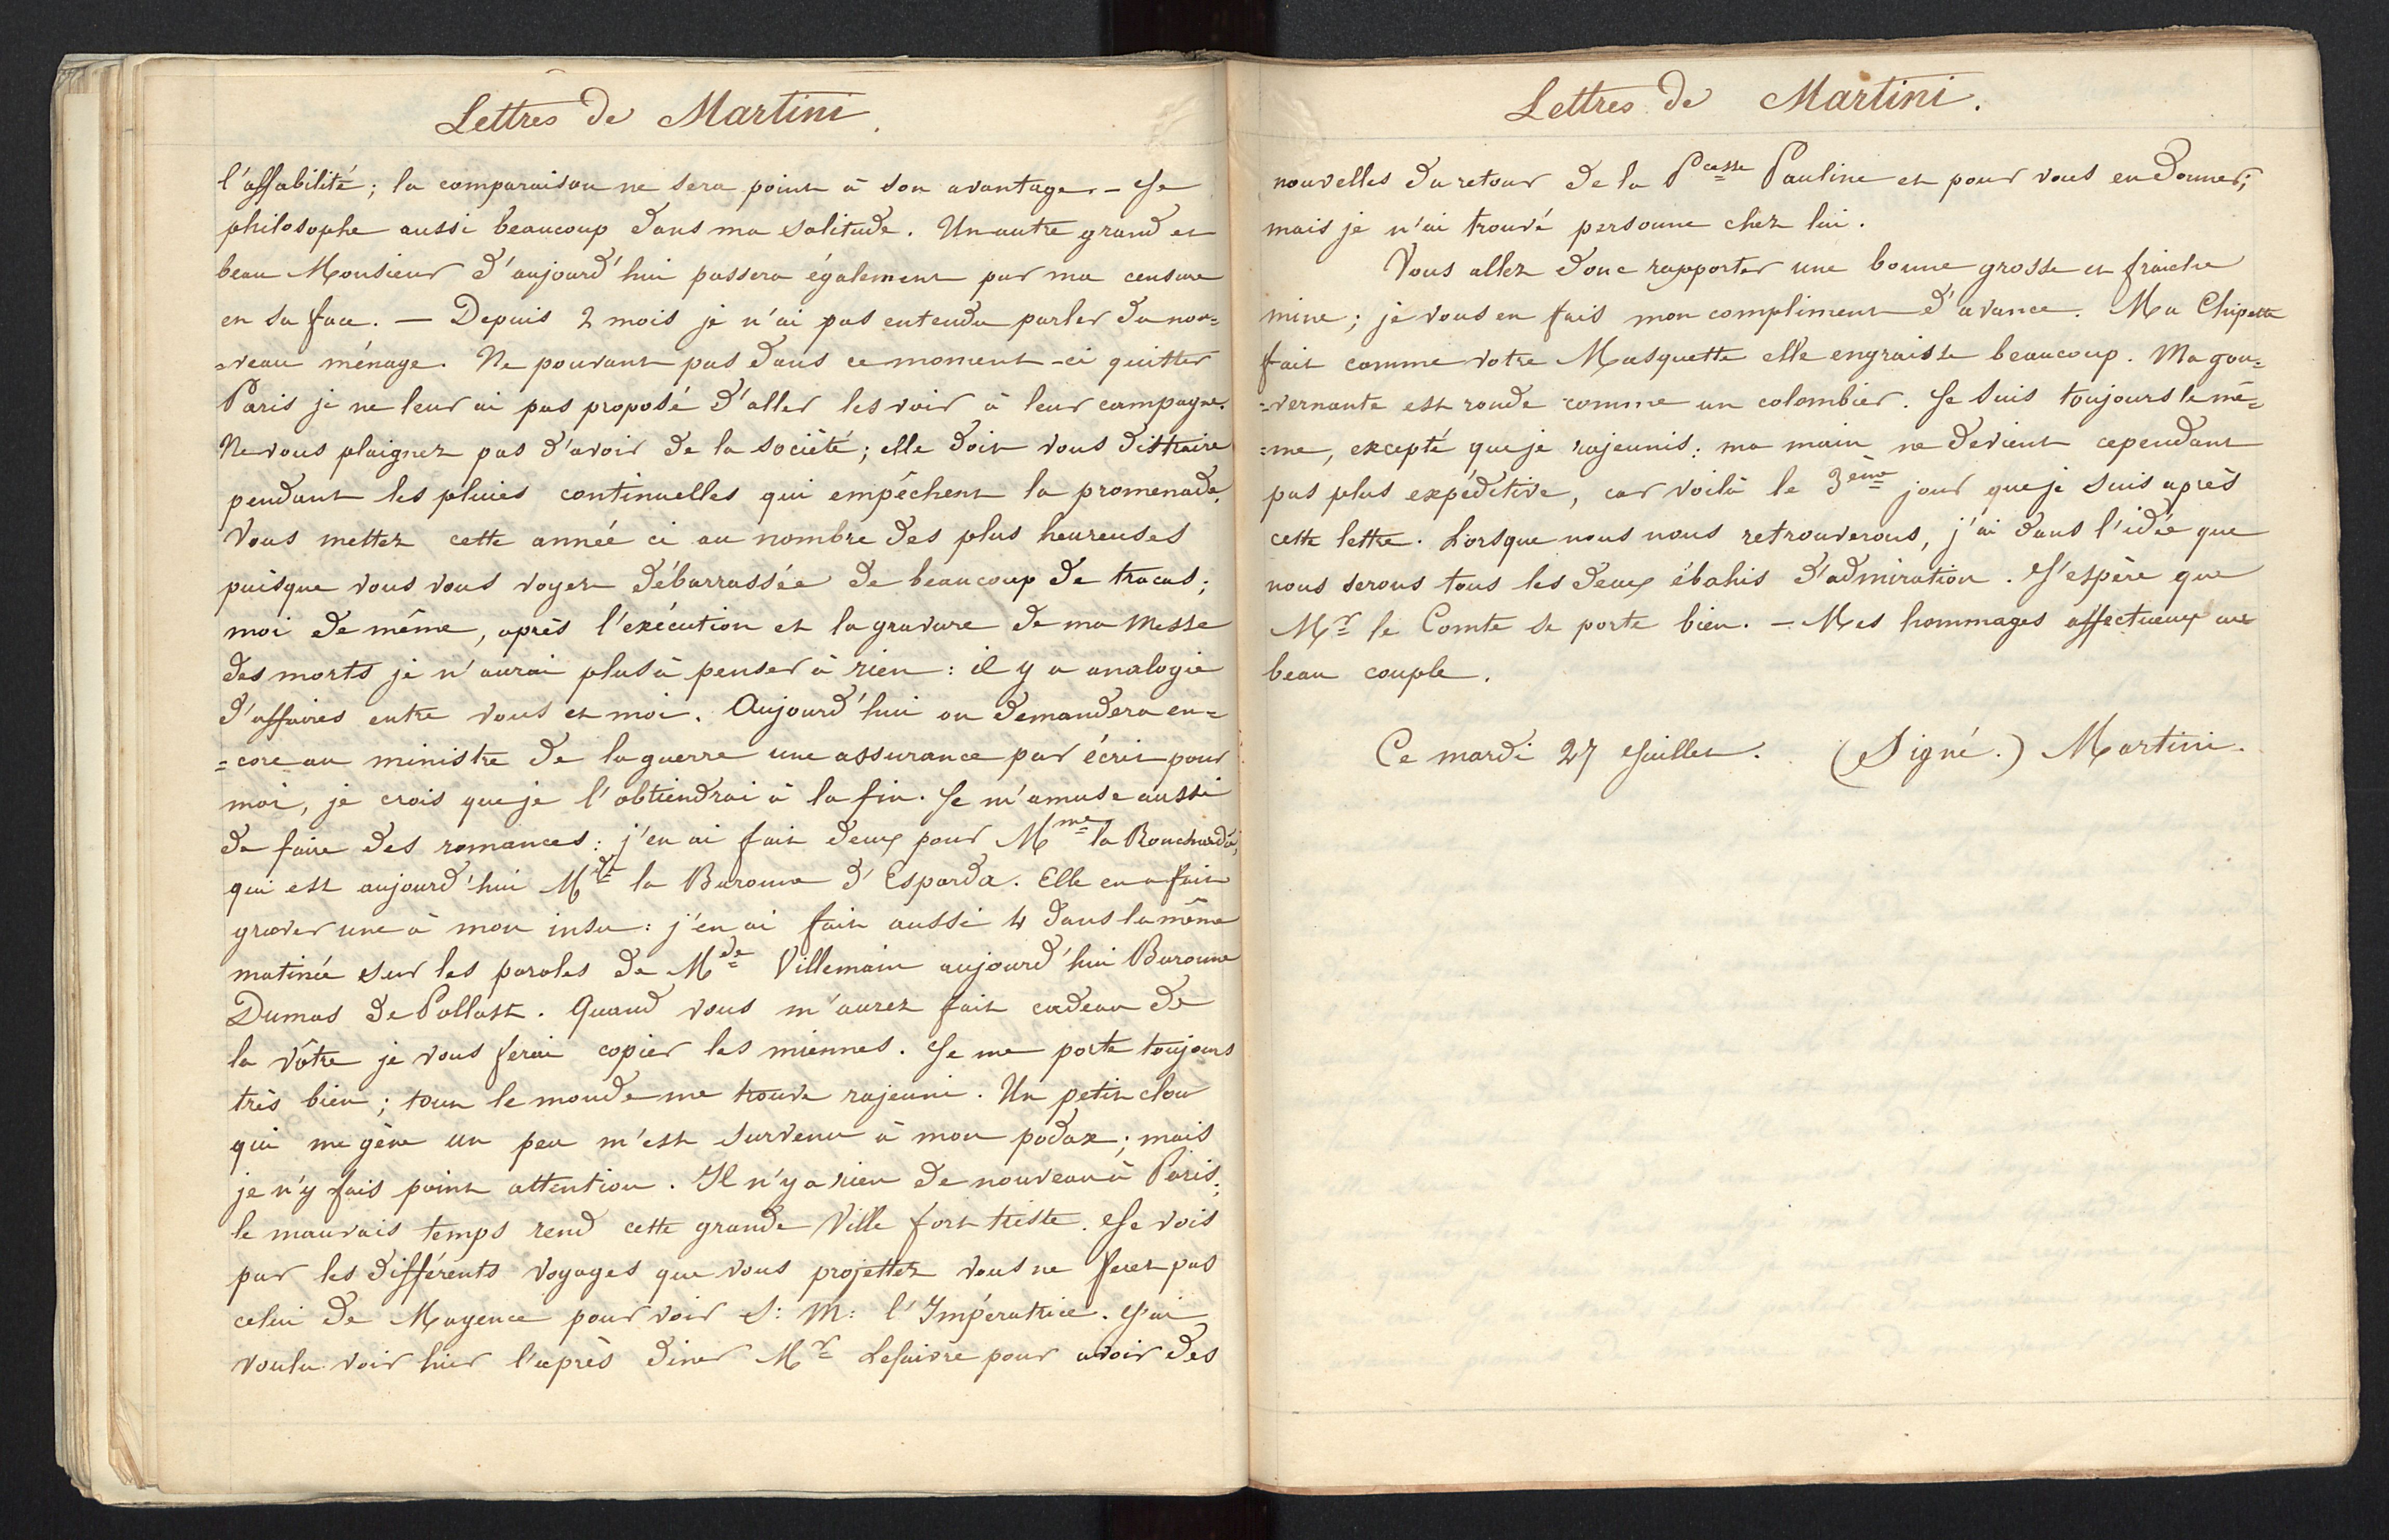 Lettres de Martini.
l'affabilité; la comparaison ne sera point à son avantage. – Je
philosophe aussi beaucoup dans ma solitude. Un autre grand et
beau Monsieur d'aujourd'hui passera également par ma censure
en sa face. — Depuis 2 mois je n'ai pas entendu parler du nou=
=veau ménage. Ne pouvant pas dans ce moment-ci quitter
Paris je ne leur ai pas proposé d'aller les voir à leur campagne.
Ne vous plaignez pas d'avoir de la société; elle doit vous distraire
pendant les pluies continuelles qui empêchent la promenade.
Vous mettez cette année ci au nombre des plus heureuses
puisque vous vous voyez débarrassée de beaucoup de tracas;
moi de même, après l'exécution et la gravure de ma Messe
des morts je n'aurai plus à penser à rien: il y a analogie
d'affaires entre vous et moi. Aujourd'hui on demandera en=
=core au ministre de la guerre une assurance par écrit pour
moi, je crois que je l'obtiendrai à la fin. Je m'amuse aussi
de faire des romances: j'en ai fait deux pour Mme la
qui est aujourd'hui Mde la Baronne d'Esparda. Elle en a fait
graver une à mon insu: j'en ai fait aussi 4 dans la même
matinée sur les paroles de Mde Villemain aujourd'hui Baronne
Dumas de Pollast. Quand vous m'aurez fait cadeau de
la vôtre je vous ferai copier les miennes. Je me porte toujours
très bien; tout le monde me trouve rajeuni. Un petit clou
qui me gène un peu m'est survenu à mon podax; mais
je n'y fais point attention. Il n'y a rien de nouveau à Paris;
le mauvais temps rend cette grande Ville fort triste. Je vois
par les différents voyages que vous projettez vous ne ferez pas
celui de Mayence pour voir S: M: l'Impératrice. J'ai
voulu voir hier l'après diner Mr Lefaivre pour avoir des
Lettres de Martini.
nouvelles du retour de la Pcesse Pauline et pour vous en donner;
mais je n'ai trouvé personne chez lui.
Vous allez donc rapporter une bonne grosse et fraiche
mine; je vous en fais mon compliment d'avance. Ma Chipette
fait comme votre Masquette elle engraisse beaucoup. Ma gou=
=vernante est ronde comme un colombier. Je suis toujours le mê=
=me, excepté que je rajeunis: ma main ne devient cependant
pas plus expéditive, car voilà le 3ème jour que je suis après
cette lettre. Lorsque nous nous retrouverons, j'ai dans l'idée que
nous serons tous les deux ébahis d'admiration. J'espère que
Mr le Comte se porte bien. – Mes hommages affectueux au
beau couple.
Ce mardi 27 Juillet. (Signé.) Martini.